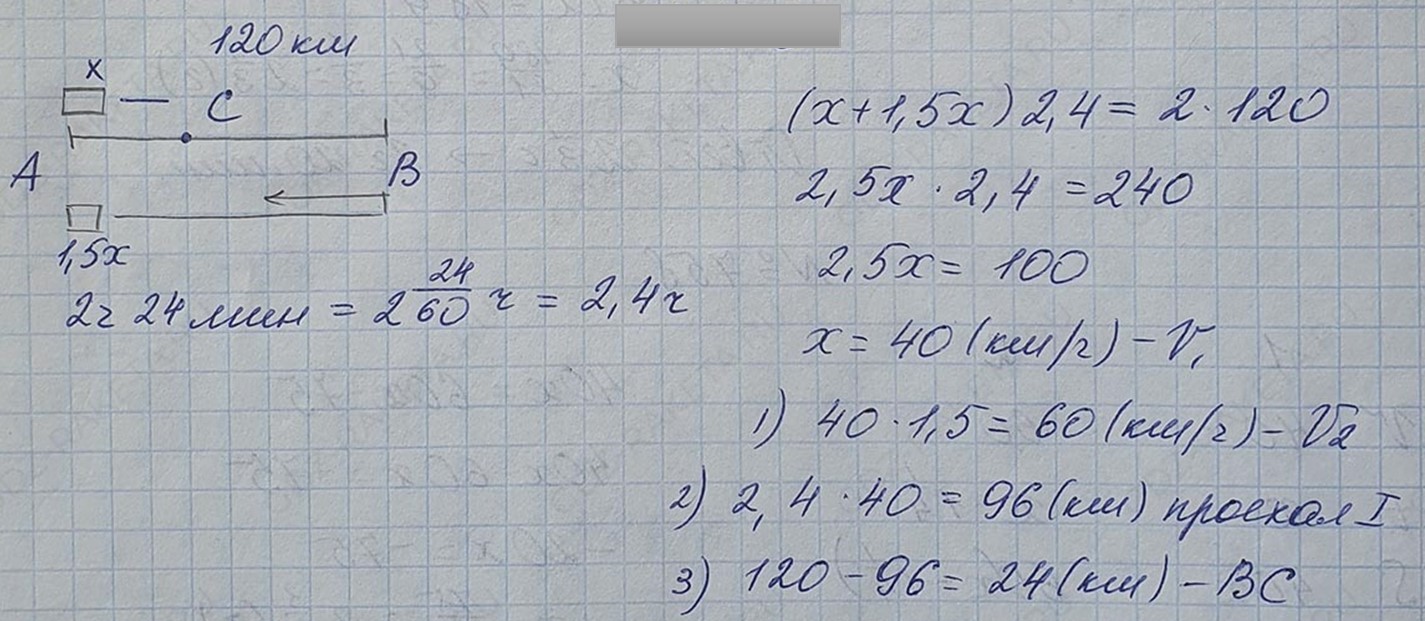 120 км
x
C
A
B
1,5x
2ч 24 мин = 2 24/60 ч = 2,4ч
(x+1,5x) 2,4 = 2 · 120
2,5x · 2,4 = 240
2,5x = 100
x = 40 (км/ч) – V₁
1) 40 · 1,5 = 60 (км/ч) – V₂
2) 2,4 · 40 = 96 (км) проехал I
3) 120 – 96 = 24 (км) – BC